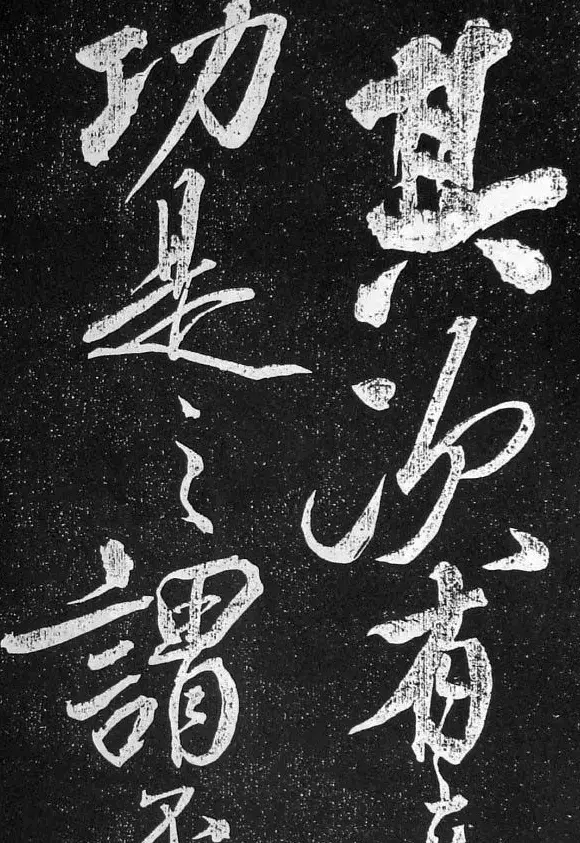 其次有立
功是之謂不